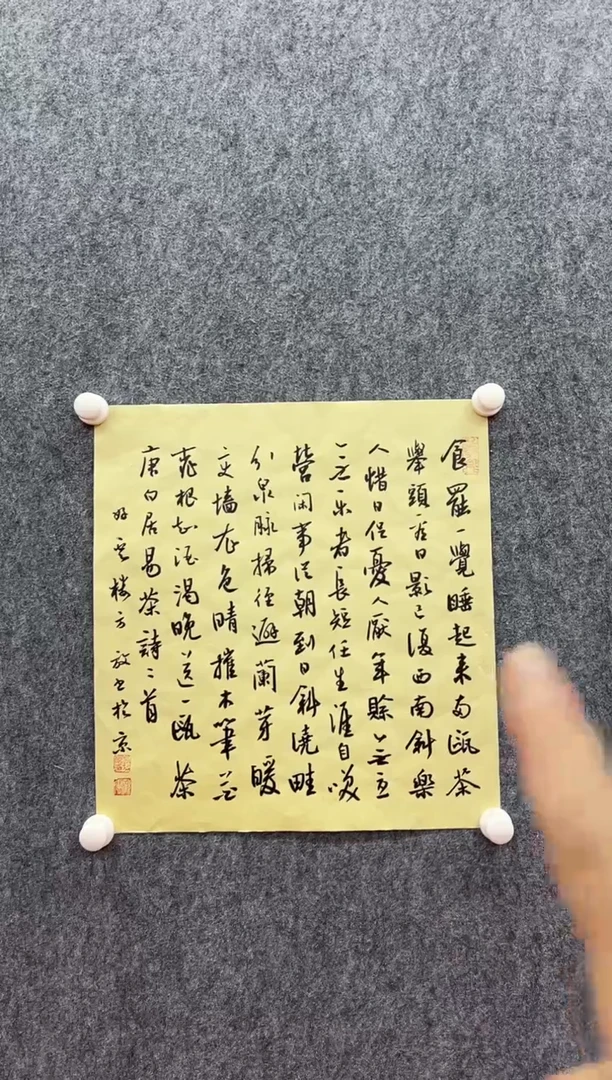 食罷一覺睡起來兩甌茶
舉頭看日影已復西南斜樂
人惜日促憂人厭年賒無
樂者長短任生涯自嘆
營闲事從朝到日斜澆畦
泉脉掃徑避蘭芽暖
变墙衣色晴摧木筆花
桃根知酒渴晚送一甌茶
唐白居易茶詩二首
樓方放书於京